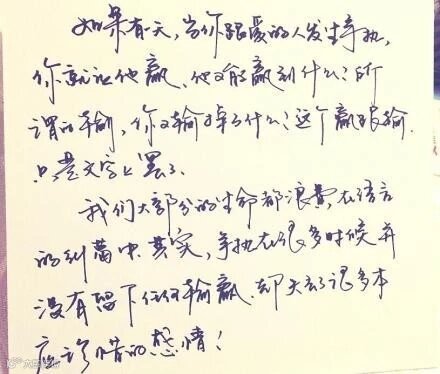 如果有一天，当你跟爱的人发生争执，
你就让他赢、他又能赢到什么？所
谓的输，你又输掉了什么？这个赢跟输，
只是文字上罢了。
我们大部分的生命都浪费，在语言
的纠葛中。其实，争执在很多时候并
没有留下任何输赢、却失去了很多本
应珍惜的感情！